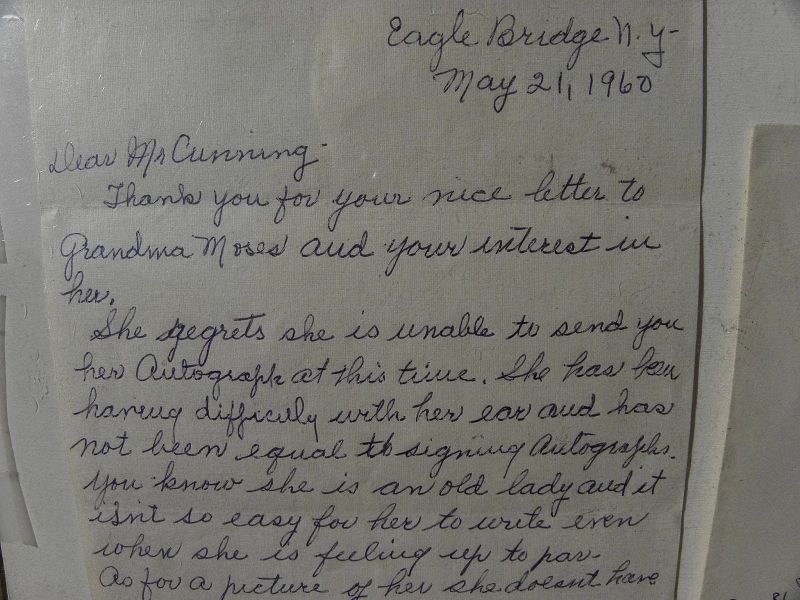 Eagle Bridge N.Y-
May 21, 1960
Dear Mr Cunning-
Thank you for your nice letter to
Grandma Moses and your interest in
her.
She regrets she is unable to send you
her Autograph at this time. She has been
having difficulty with her ear and has
not been equal to signing Autographs.
You know she is an old lady and it
isn't so easy for her to write even
when she is feeling up to par-
As for a picture of her she doesnt have